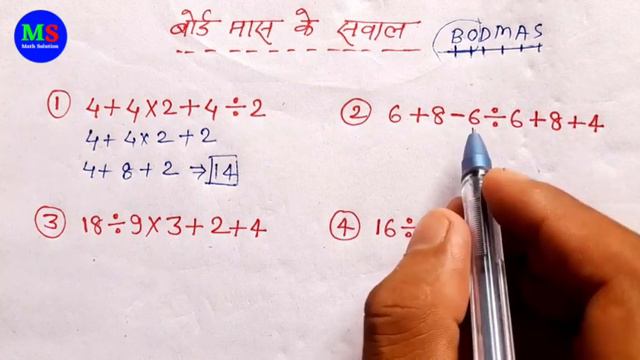 MS
Math Solution
बोर्ड मास के सवाल
BODMAS
① 4+4×2+4÷2
4+4×2+2
4+8+2 → 14
② 6+8-6÷6+8+4
③ 18÷9×3+2+4
④ 16÷